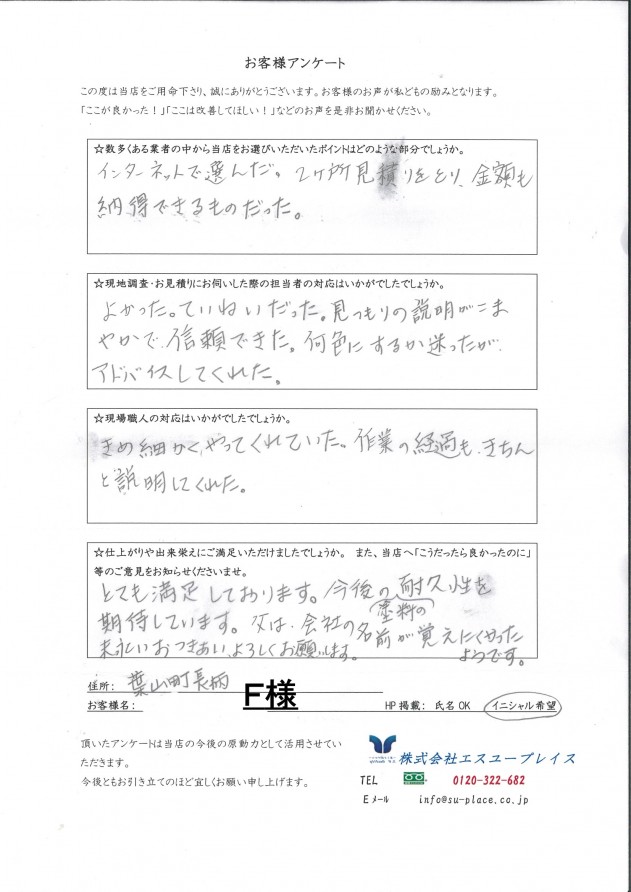 お客様アンケート
この度は当店をご用命下さり、誠にありがとうございます。お客様のお声が私どもの励みとなります。
「ここが良かった！」「ここは改善してほしい！」などのお声を是非お聞かせください。
☆数多くある業者の中から当店をお選びいただいたポイントはどのような部分でしょうか。
インターネットで選んだ。2ヶ所見積りをとり、金額も
納得できるものだった。
☆現地調査・お見積りにお伺いした際の担当者の対応はいかがでしたでしょうか。
よかった。ていねいだった。見つもりの説明がこま
やかで、信頼できた。何色にするか迷ったが、
アドバイスしてくれた。
☆現場職人の対応はいかがでしたでしょうか。
きめ細かくやってくれていた。作業の経過も、きちん
と説明してくれた。
☆仕上がりや出来栄えにご満足いただけましたでしょうか。 また、当店へ「こうだったら良かったのに」
等のご意見をお知らせくださいませ。
とても満足しております。今後の耐久性を
期待しています。父は、会社の塗料の名前が覚えにくかった
ようです。
末永いおつきあい、よろしくお願いします。
住所: 葉山町長柄
お客様名: F様 HP掲載: 氏名OK イニシャル希望
頂いたアンケートは当店の今後の原動力として活用させてい
ただきます。
今後ともお引き立てのほど宜しくお願い申し上げます。
株式会社エスユープレイス
TEL 0120-322-682
Eメール info@su-place.co.jp